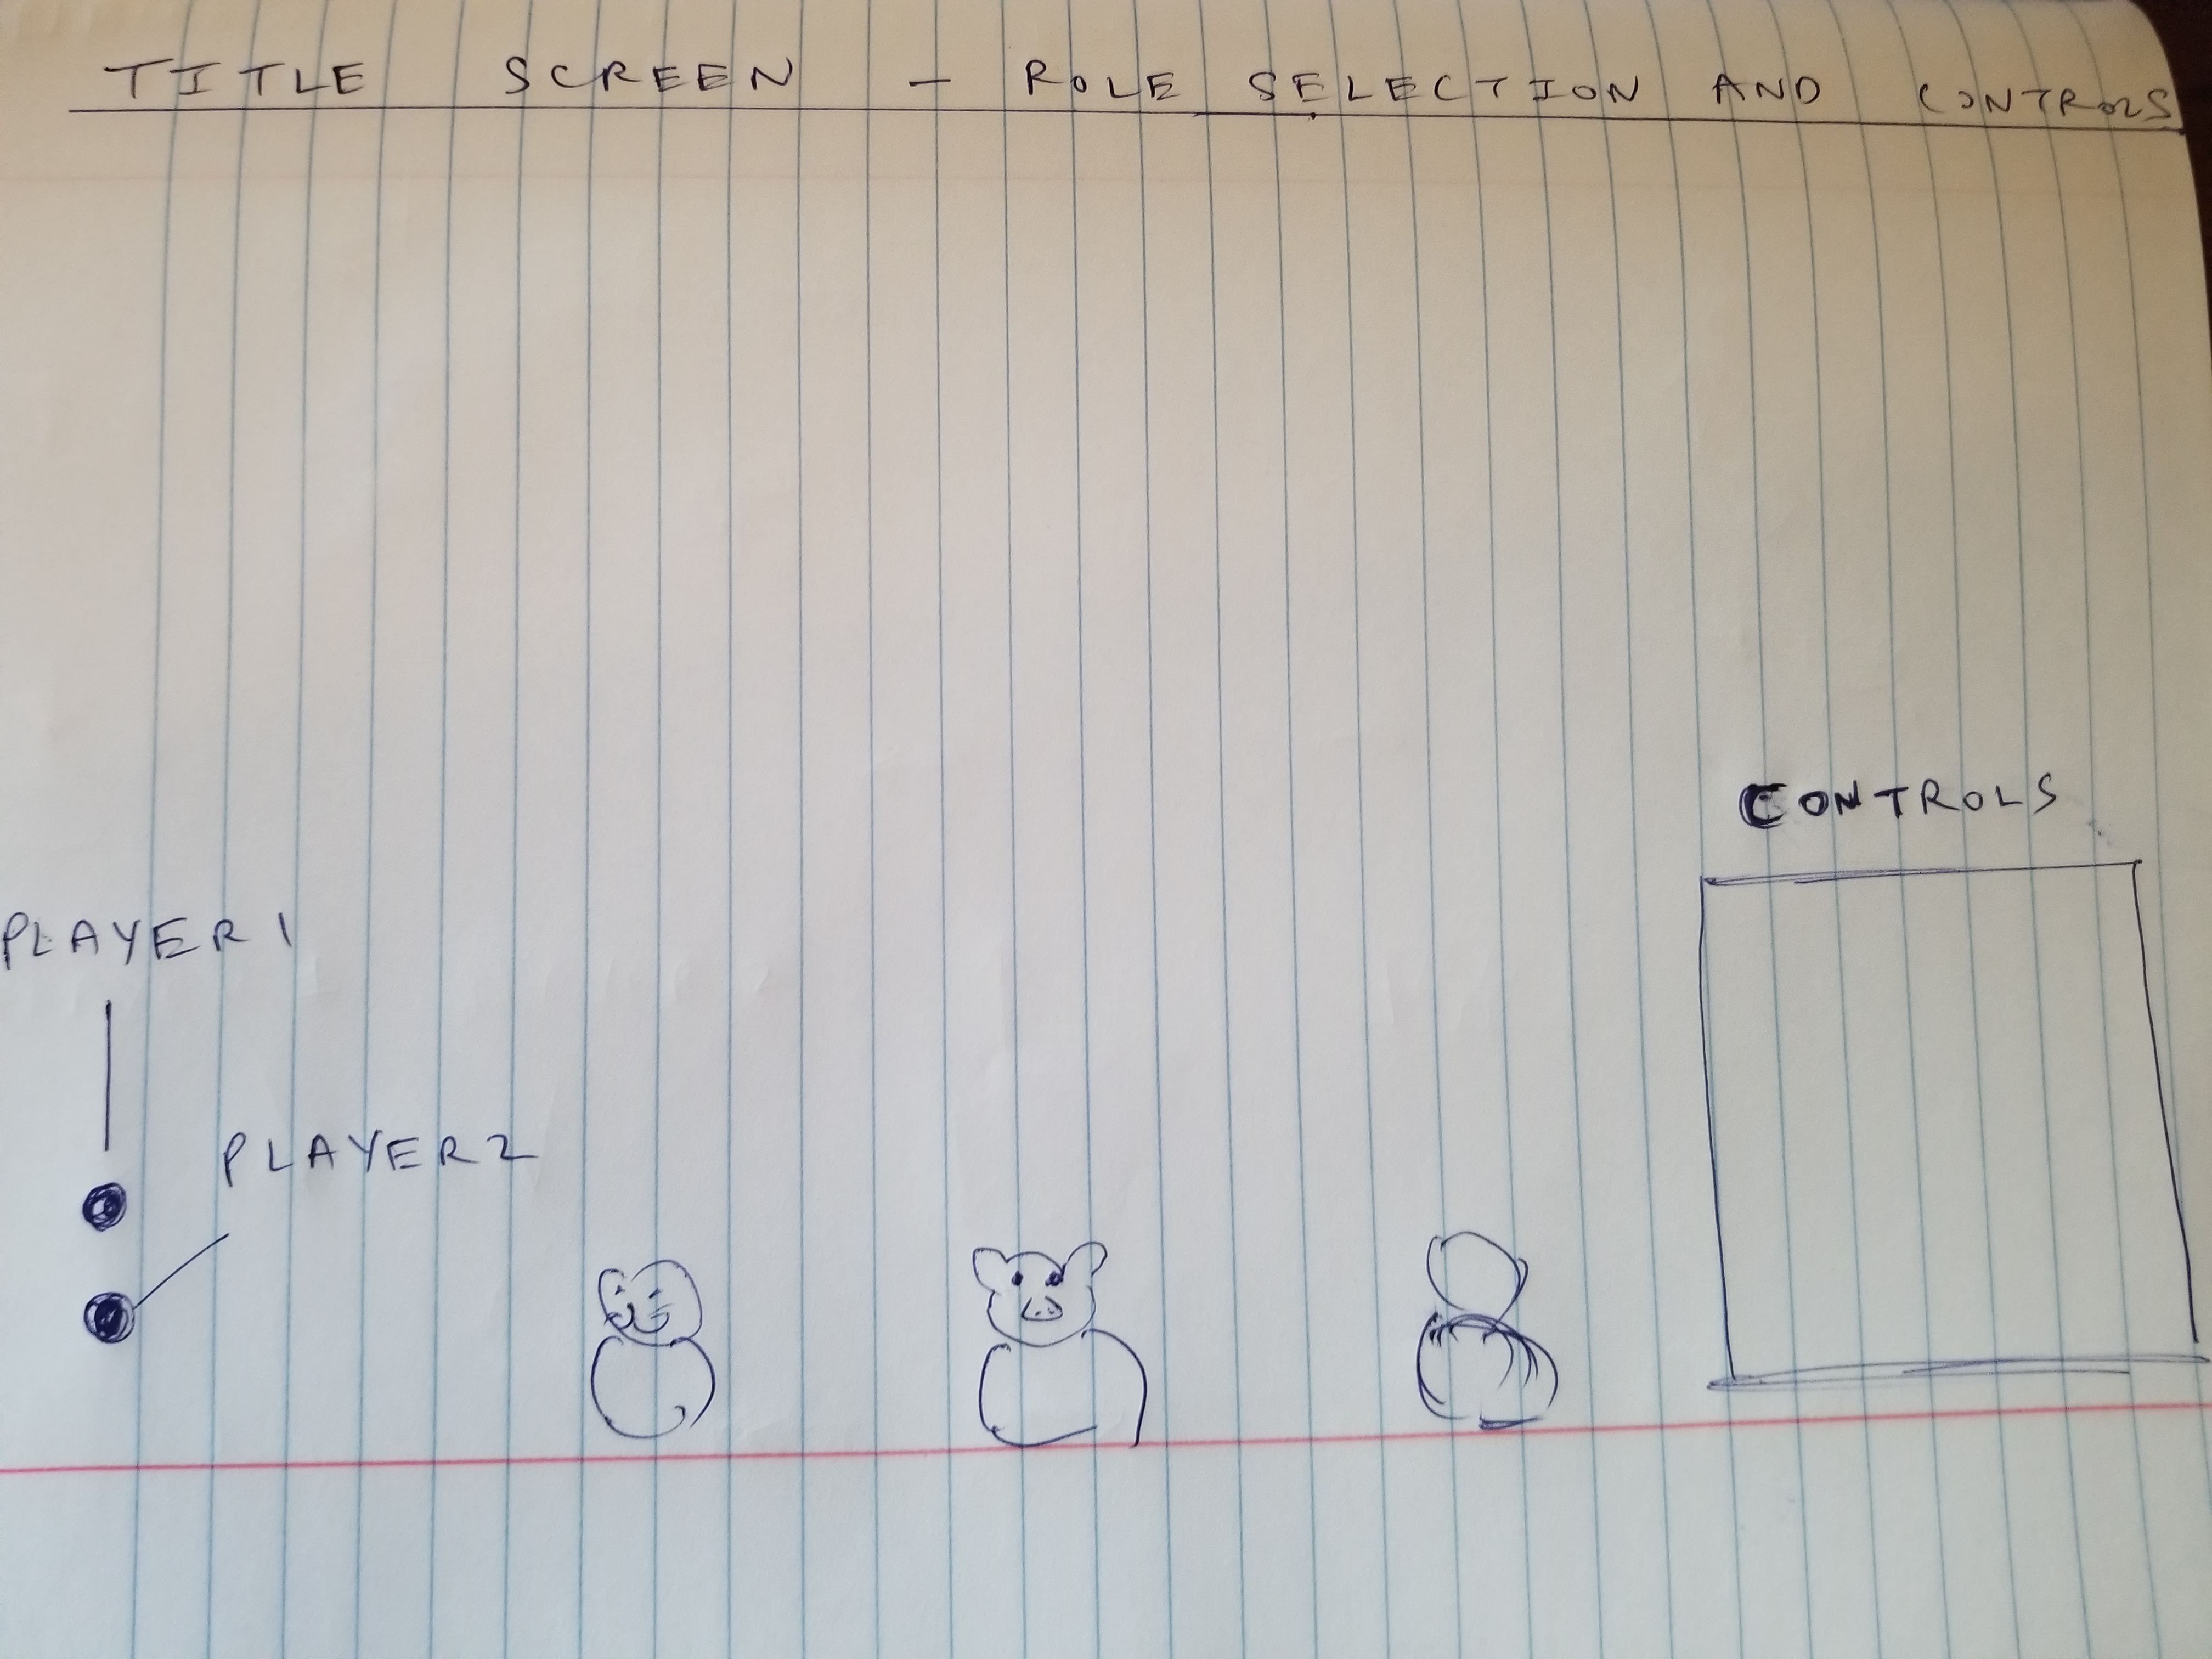 TITLE SCREEN - ROLE SELECTION AND CONTROLS
PLAYER 1
PLAYER 2
CONTROLS